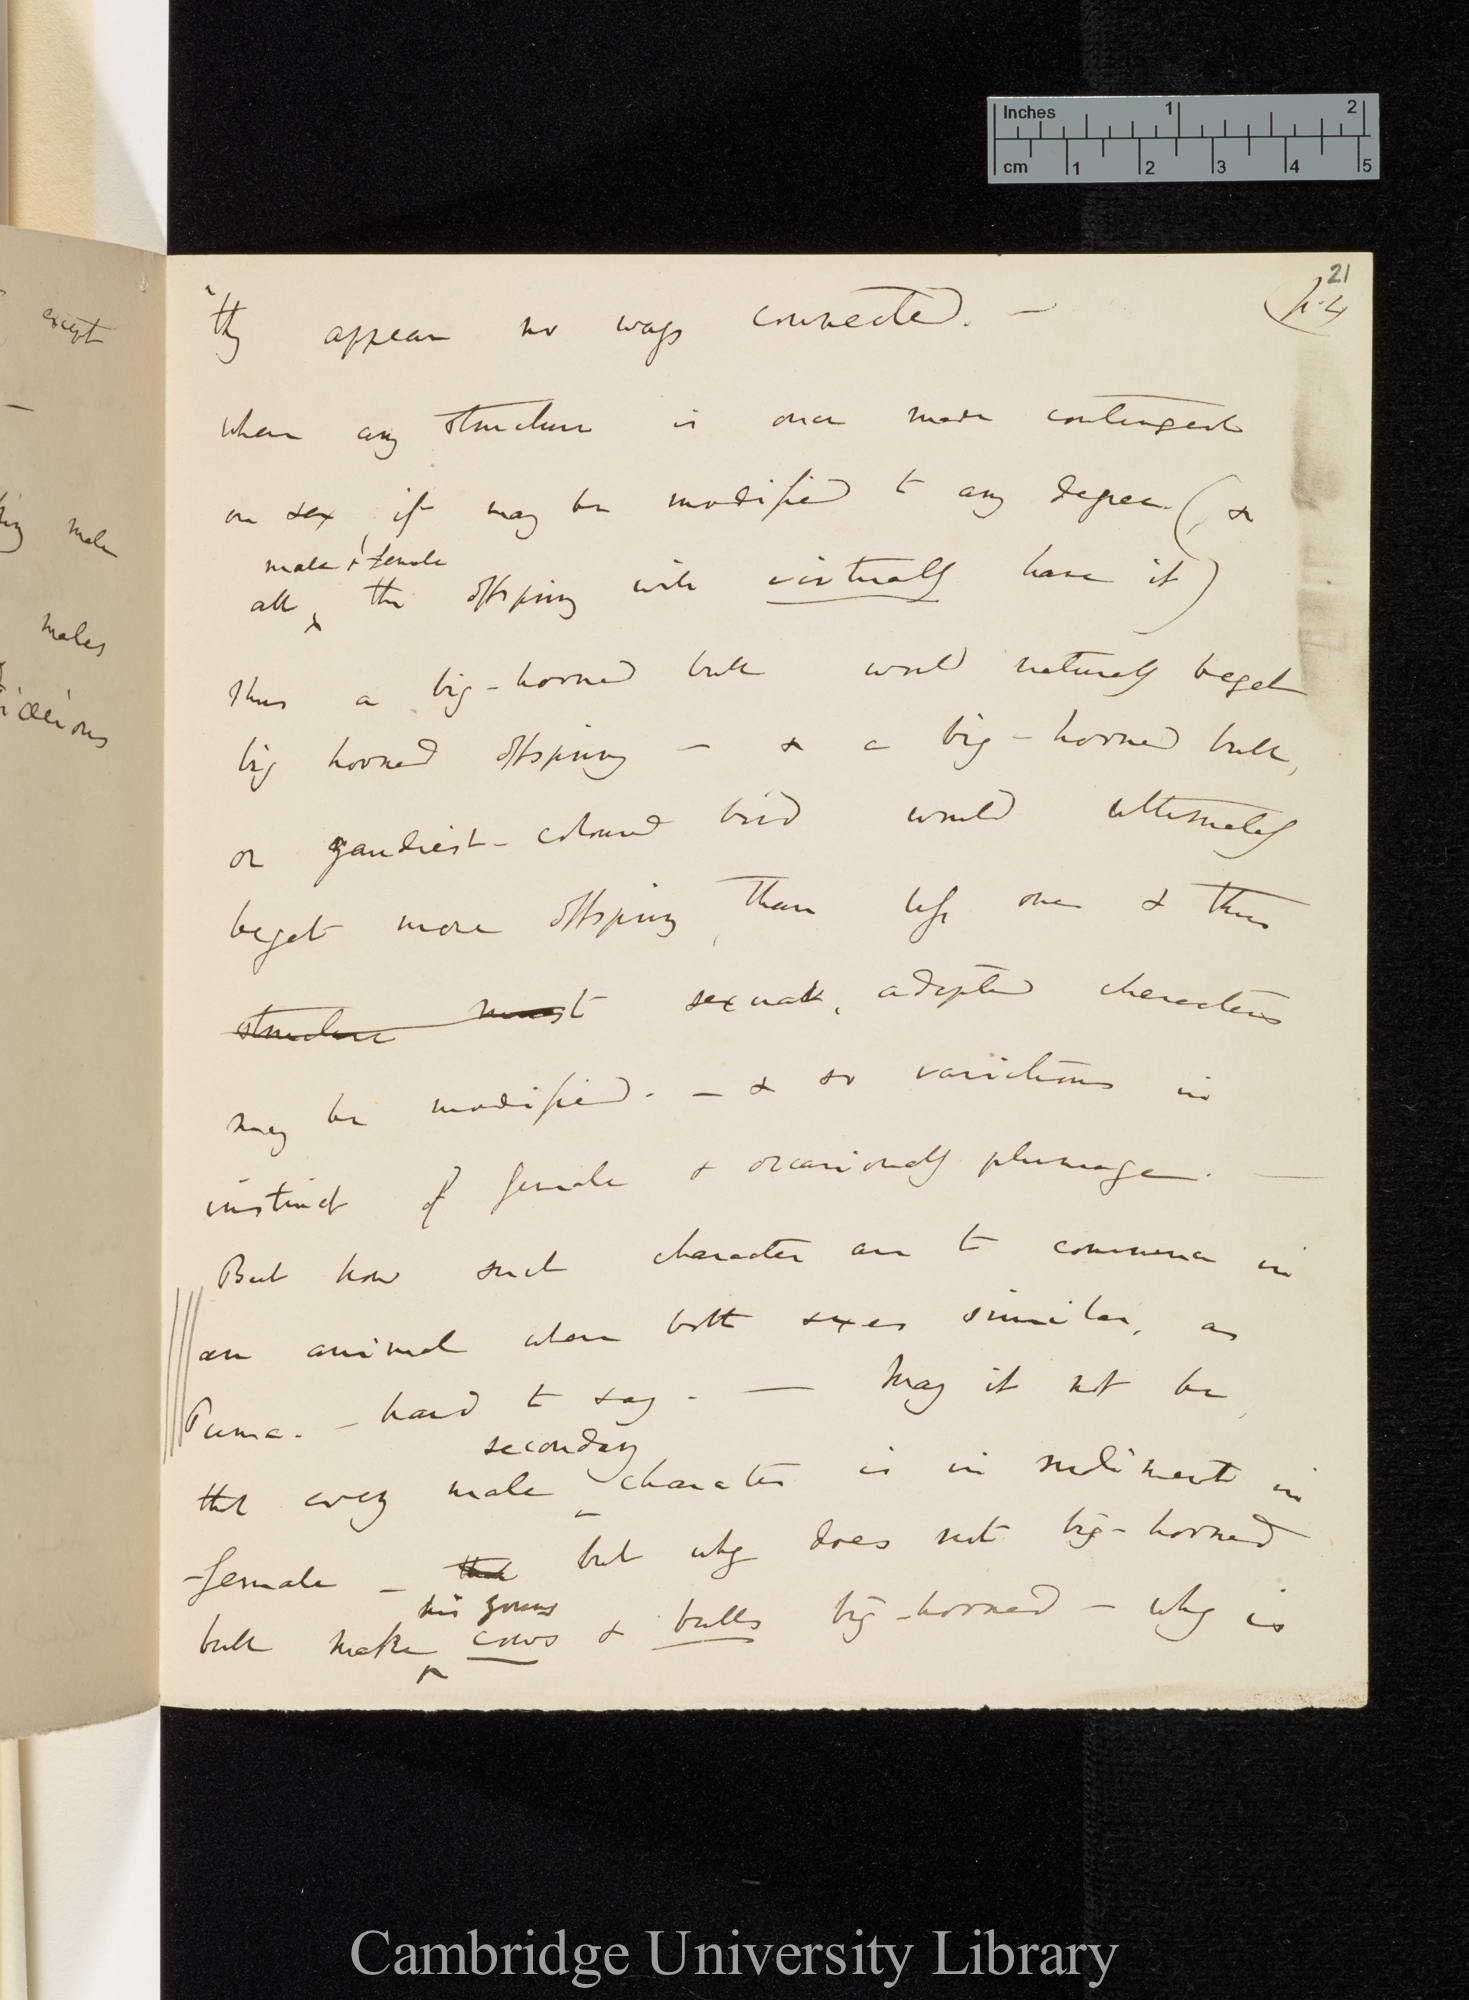 Inches 1 2
cm 1 2 3 4 5
21
p. 4
they appear no ways connected. —
when any structure is once made contingent
on sex, it may be modified to any degree. (&
male & female
all the offspring will virtually have it)
Thus a big-horned bull would naturally beget
big horned offspring — & a big-horned bull,
or gaudiest-coloured bird would ultimately
beget more offspring, than less one & thus
structure must sexual, adopted characters
may be modified. — & so variations in
instinct of female & occasionally plumage. —
But how such character are to commence in
an animal when both sexes similar, as
Puma. — hard to say. — May it not be,
secondary
that every male character is in rudiment in
female — that but why does not big-horned
his young
bull make cows & bulls big-horned — why is
except
—
male
males
Cambridge University Library